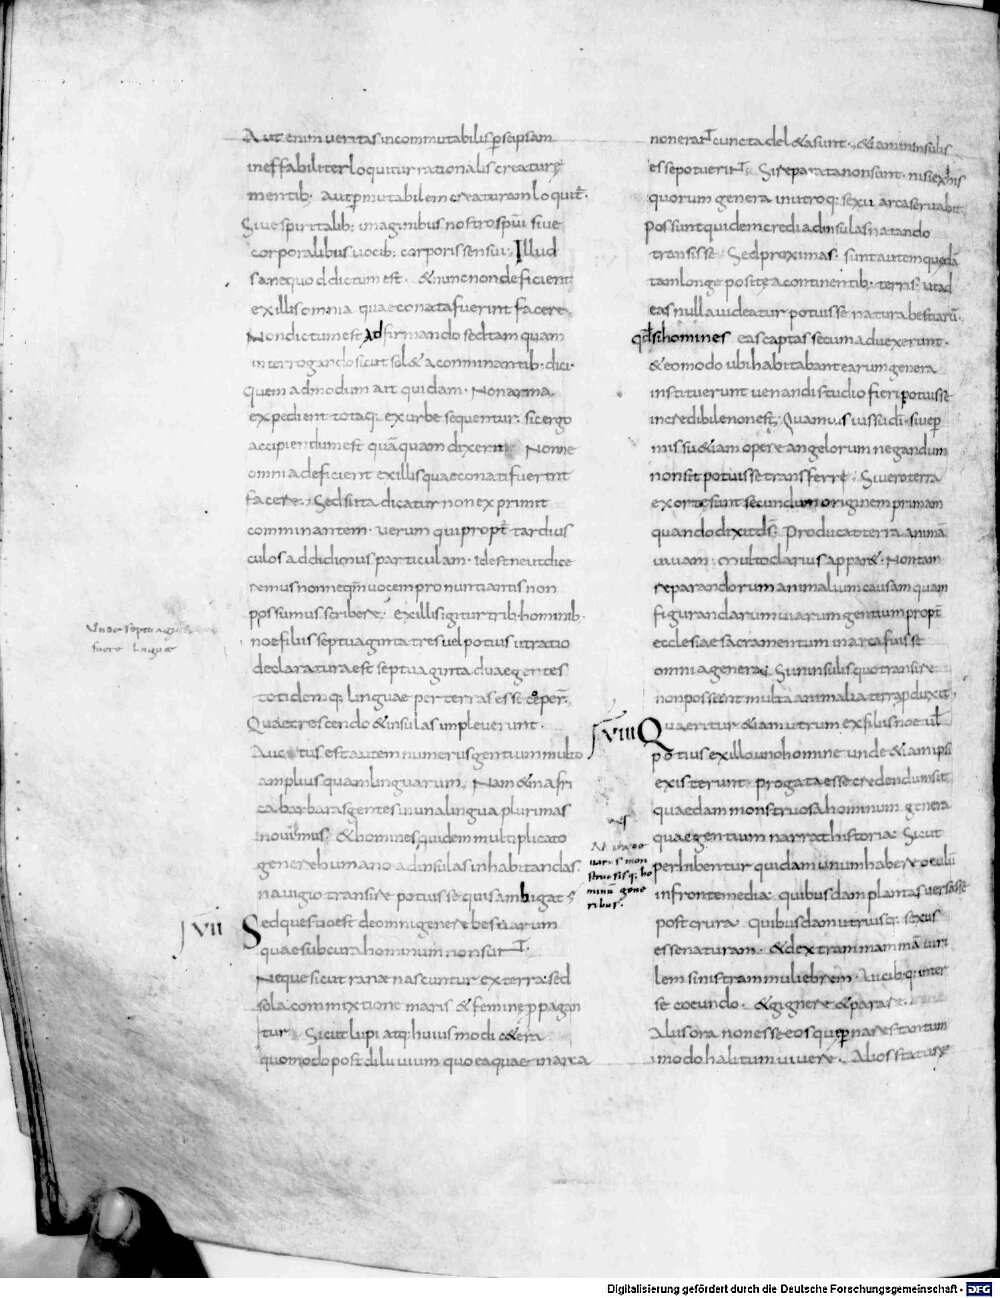 Aut enim veritas incommutabilis p seipsam
ineffabiliter loquitur rationalis creaturę
mentib; aut p mutabilem creaturam loquit̃
Sive spiritalib; imaginibus nostro spũi sive
corporalibus vocib; corporis sensui; Illud
sane quod dictum est· & nunc non deficient
ex illis omnia quae conata fuerint facere
Non dictum est adfirmando sed tamquam
interrogando sicut sol& a comminantib; dici
quem admodum ait quidam· Non arma
expedient totaq; ex urbe sequentur; sic ergo
accipiendum est quãquam dixerit Nonne
omnia deficient ex illis quae conati fuerint
facere; Sed si ita dicatur non exprimit
comminantem· verum qui propt̃ tardius
culos addidimus particulam· id est ne ut dice
remus nonne qm̃ vocem pronuntiantis non
possumus scribere; ex illis igitur trib; hominib;
noe filiis septuaginta tres vel potius ut ratio
declaratura est septuaginta duae gentes
totidemq; linguae per terras esse coeper̃
Quae crescendo & insulas impleverunt·
Auctus est autem numerus gentium multo
amplius quam linguarum; Nam & in afri
ca barbaras gentes in una lingua plurimas
novimus; & homines quidem multiplicato
genere humano ad insulas inhabitandas
navigio transire potuisse quis ambigat;
Unde septuaginta
fuere linguae
XVII Sed questio est de omni genere bestiarum
quae sub cura hominum non sunt
Neque sicut ranae nascuntur ex terra sed
sola commixtione maris & femine ppagan
tur; Sicut lupi atq; huius modi c&era
quomodo post diluvium quo ea quae in arca
non erant cuncta del&a sunt· &iam in insulis
esse potuerint; Si reparata non sunt· nisi ex his
quorum genera in utroq; sexu arca servabit
possunt quidem credi ad insulas natando
transisse Sed proximas· sunt autem quedã
tam longe positę a continentib; terris· ut ad
eas nulla videatur potuisse natura bestiarũ·
qd̃ si homines eas captas secum adduxerunt·
& eo modo ubi habitabant earum genera
instituerunt venandi studio fieri potuisse
incredibile non est; Quamvis iussu di· sive p
missu &iam opere angelorum negandum
non sit potuisse transferre; Si vero terra
exortę sunt secundum originem primam
quando dixit dš Producat terra animã
vivam; multo clarius appar&· Non tam
reparandorum animalium causa quam
figurandarum variarum gentium propt̃
ecclesiae sacramentum in arca fuisse
omnia genera; Si in insulis quo transire
non possent multa animalia terra pduxit;
XVIII Quaeritur &iam utrum ex filiis noe vel
potius ex illo uno homine unde &iam ipsi
existerunt· progata esse credendum sit
quaedam monstruosa hominum genera
quae gentium narrat historia· Sicut
perhibentur quidam unum habere oculũ
in fronte media· quibusdam plantas versas
post crura· quibusdam utriusq; sexus
esse naturam· & dextram mammã viri
lem sinistram muliebrem· Vicib;q; inter
se coeundo· & gignere & parare·
Aliis ora non esse eos qui p nares tantum
modo halitum vivere; Alios statura
monstruosisq; ho
minũ gene
ribus·
Digitalisierung gefördert durch die Deutsche Forschungsgemeinschaft - DFG